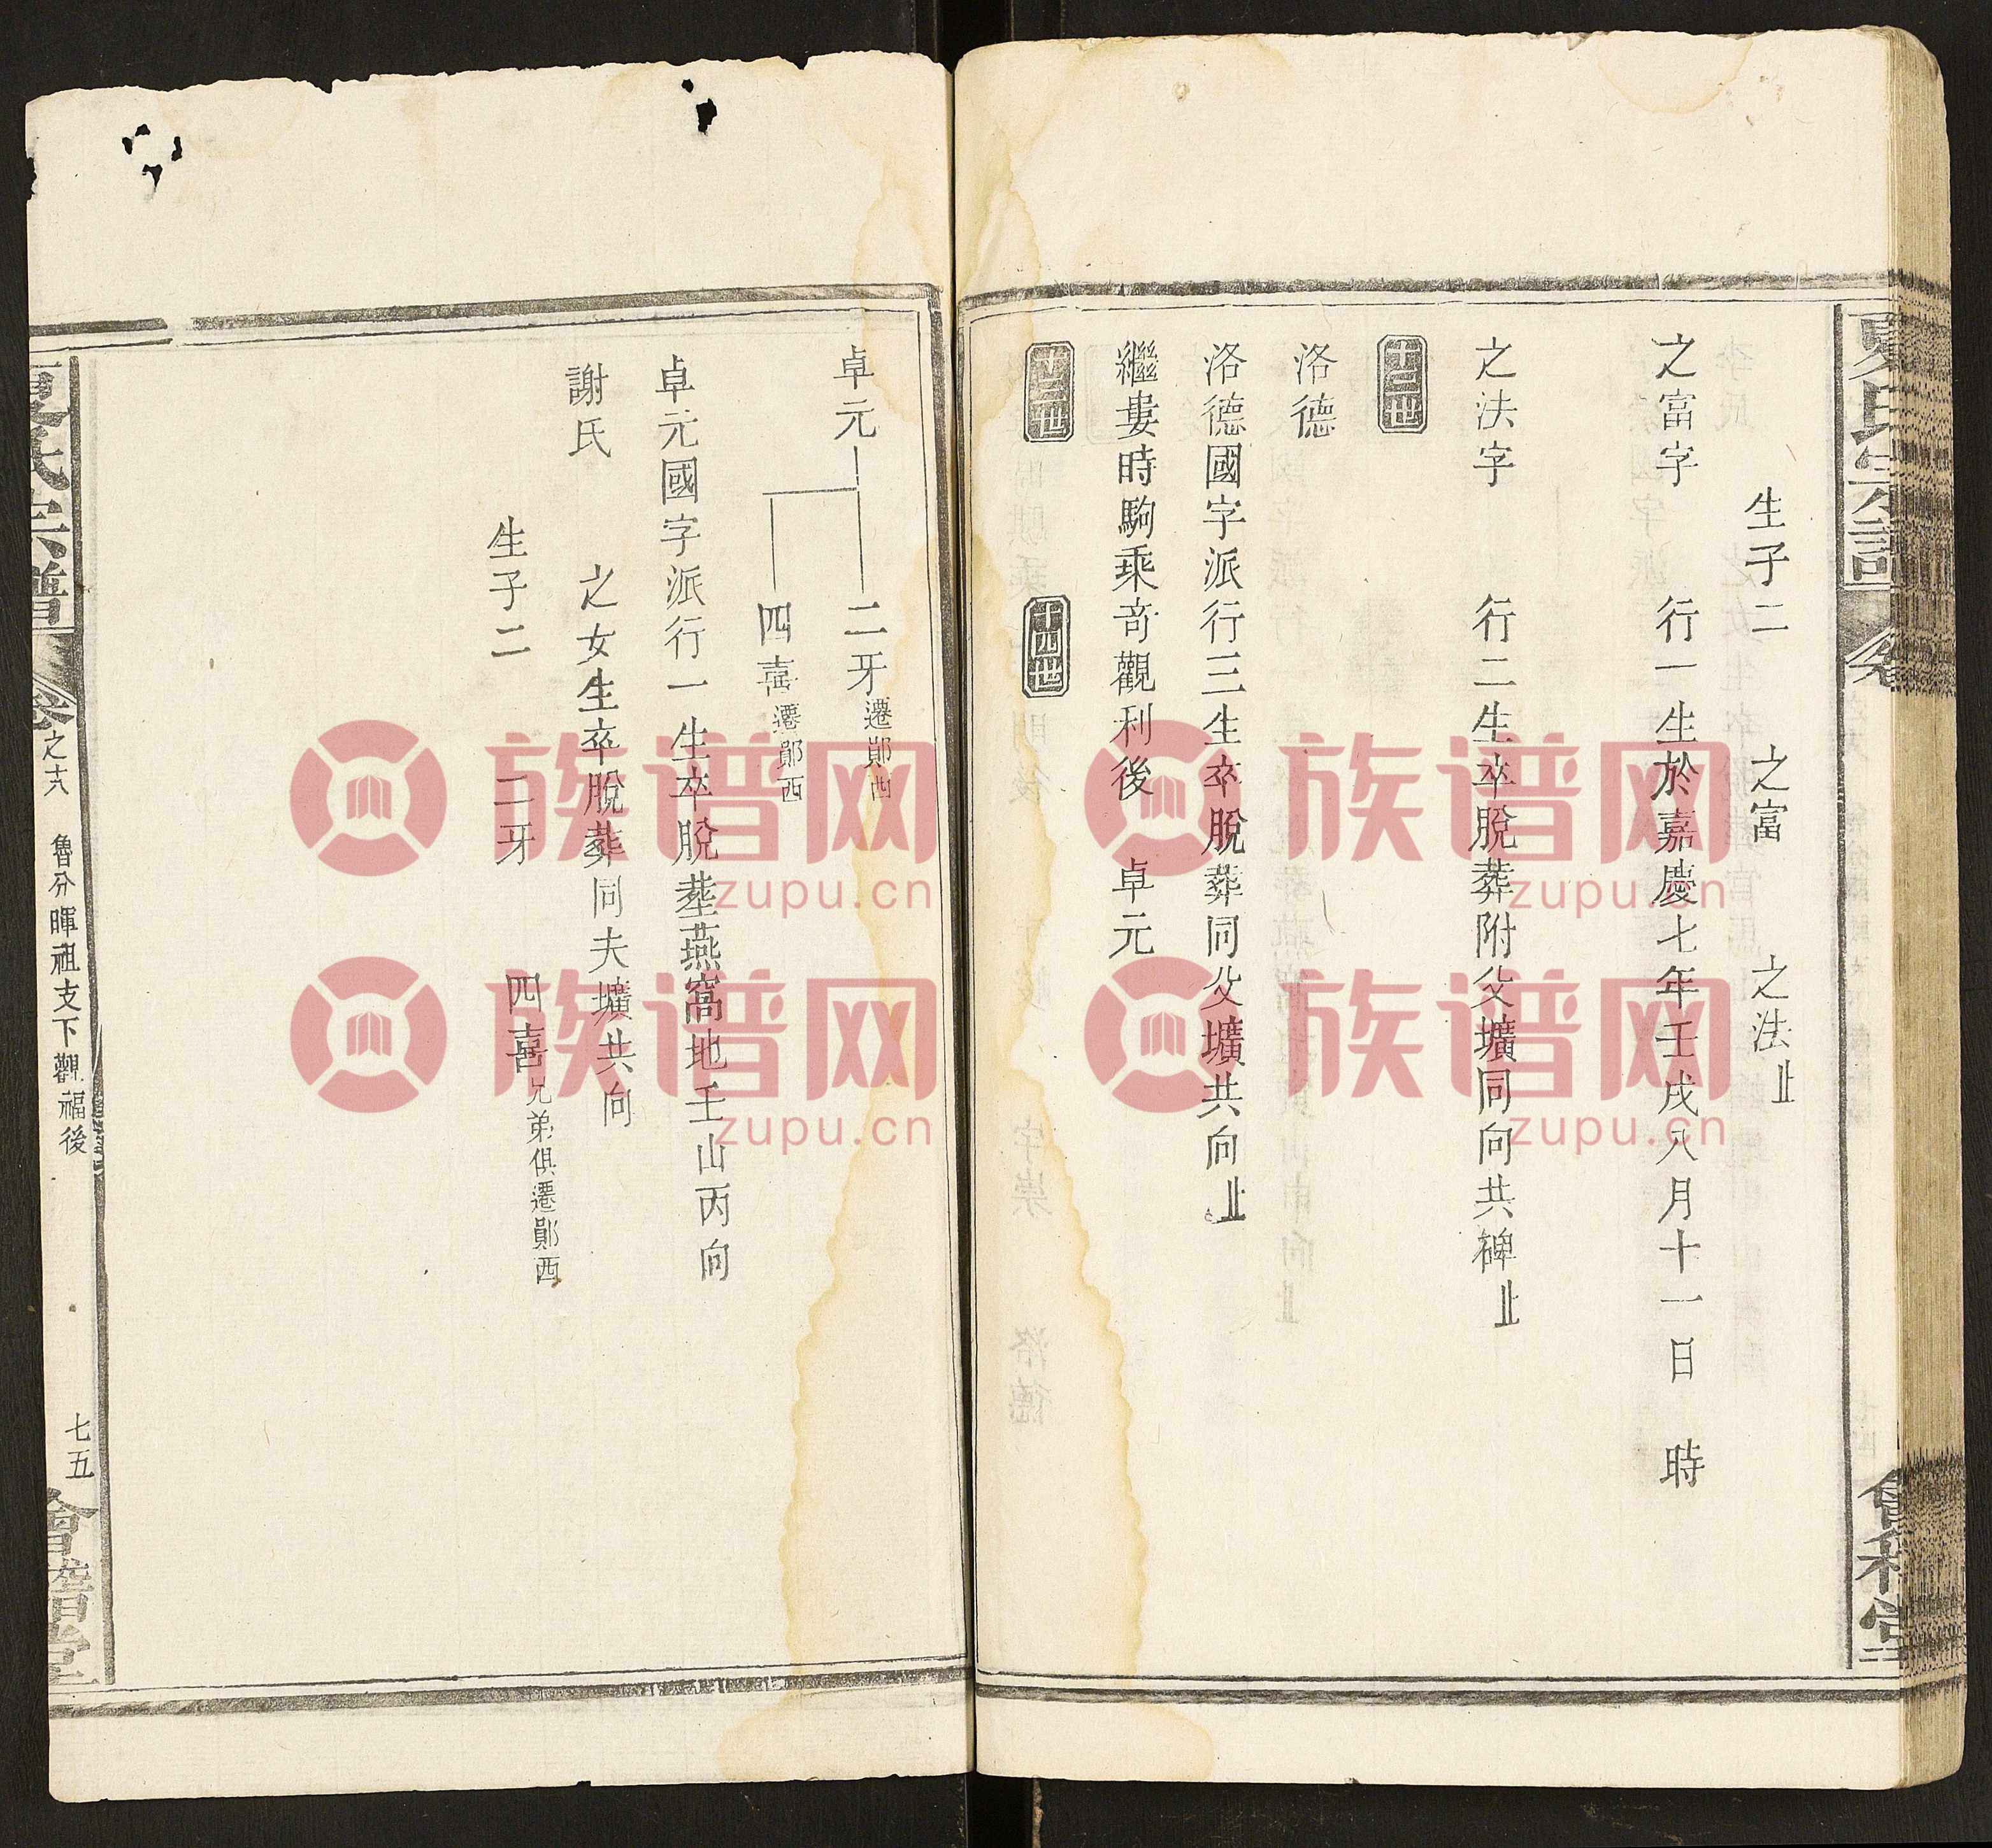 夏氏宗譜
卷
會稽堂
生子二　之富　之法止
之富字　行一生於嘉慶七年壬戌八月十一日　時
之法字　行二生卒脫葬附父壙同向共碑止
十二世
洛德
洛德國字派行三生卒脫葬同父壙共向止
繼婁時駒乘奇觀利後　卓元
十三世　十四世
卓元　二牙遷鄖西
四喜遷鄖西
卓元國字派行一生卒脫塟燕窩地壬山丙向
謝氏　之女生卒脫葬同夫壙共向
生子二　二牙　四喜兄弟俱遷鄖西
夏氏宗譜
卷之十八　魯分暉祖支下觀福後　七五
會稽堂
族谱网
zupu.cn
族谱网
zupu.cn
族谱网
zupu.cn
族谱网
zupu.cn